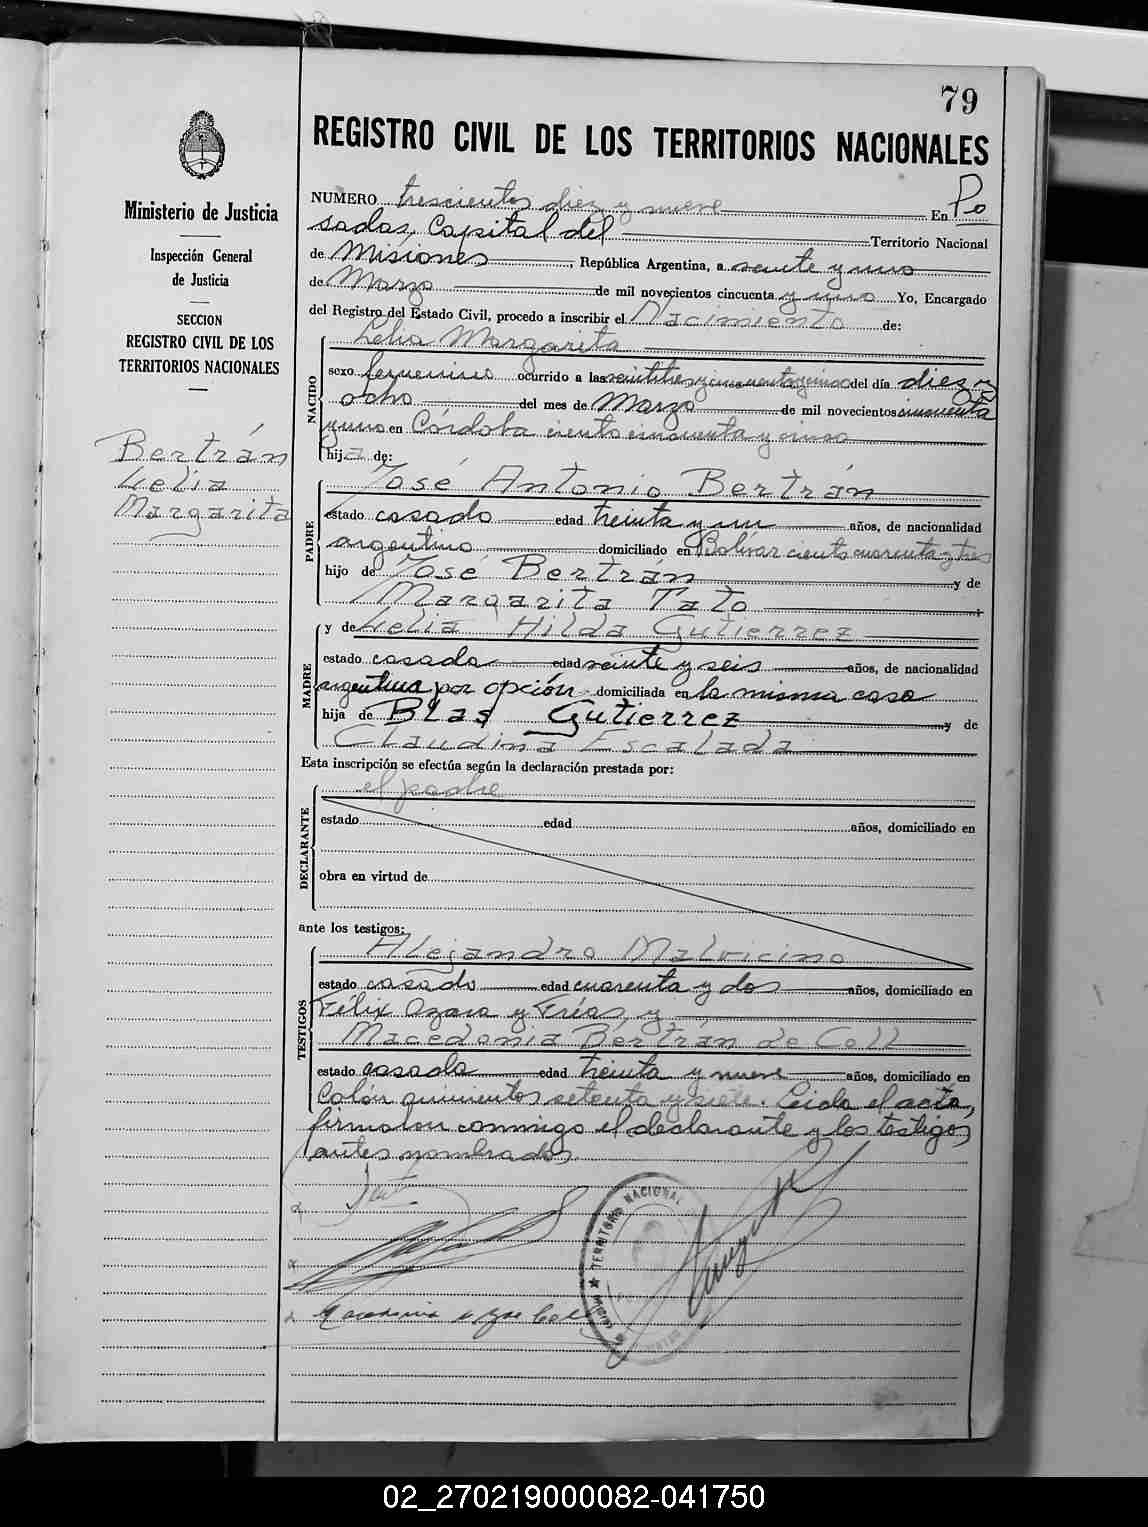 79
REGISTRO CIVIL DE LOS TERRITORIOS NACIONALES
Ministerio de Justicia
Inspección General
de Justicia
SECCION
REGISTRO CIVIL DE LOS
TERRITORIOS NACIONALES
Bertrán
Lelia
Margarita
NUMERO trescientos diez y nueve En Po
sadas, Capital del Territorio Nacional
de Misiones, República Argentina, a veinte y uno
de Marzo de mil novecientos cincuenta y uno Yo, Encargado
del Registro del Estado Civil, procedo a inscribir el Nacimiento de:
NACIDO
Lelia Margarita
sexo femenino ocurrido a las veintitres y cincuenta y cinco del día diez y
ocho del mes de Marzo de mil novecientos cincuenta
y uno en Córdoba ciento cincuenta y cinco
hija de:
PADRE
José Antonio Bertrán
estado casado edad treinta y un años, de nacionalidad
argentino domiciliado en Bolívar ciento cuarenta y tres
hijo de José Bertrán y de
Margarita Tato ;
MADRE
y de Lelia Hilda Gutierrez
estado casada edad veinte y seis años, de nacionalidad
argentina por opción domiciliada en la misma casa
hija de Blas Gutierrez y de
Claudina Escalada
Esta inscripción se efectúa según la declaración prestada por:
DECLARANTE
el padre
estado edad años, domiciliado en
obra en virtud de
ante los testigos:
TESTIGOS
Alejandro Malvicino
estado casado edad cuarenta y dos años, domiciliado en
Félix Azara y Frías, y
Macedonia Bertrán de Coll
estado casada edad treinta y nueve años, domiciliado en
Colón quinientos setenta y siete. Leida el acta,
firmaron conmigo el declarante y los testigos
antes nombrados.
TERRITORIO NACIONAL
02_270219000082-041750